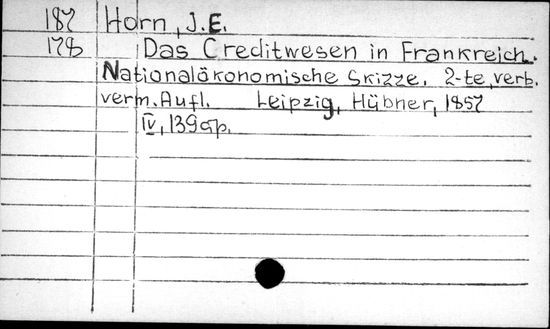 187 Horn, J.E.
178 Das Creditwesen in Frankreich.
Nationalökonomische Skizze. 2-te, verb.
verm. Aufl. Leipzig, Hübner, 1857
IV, 139 op.